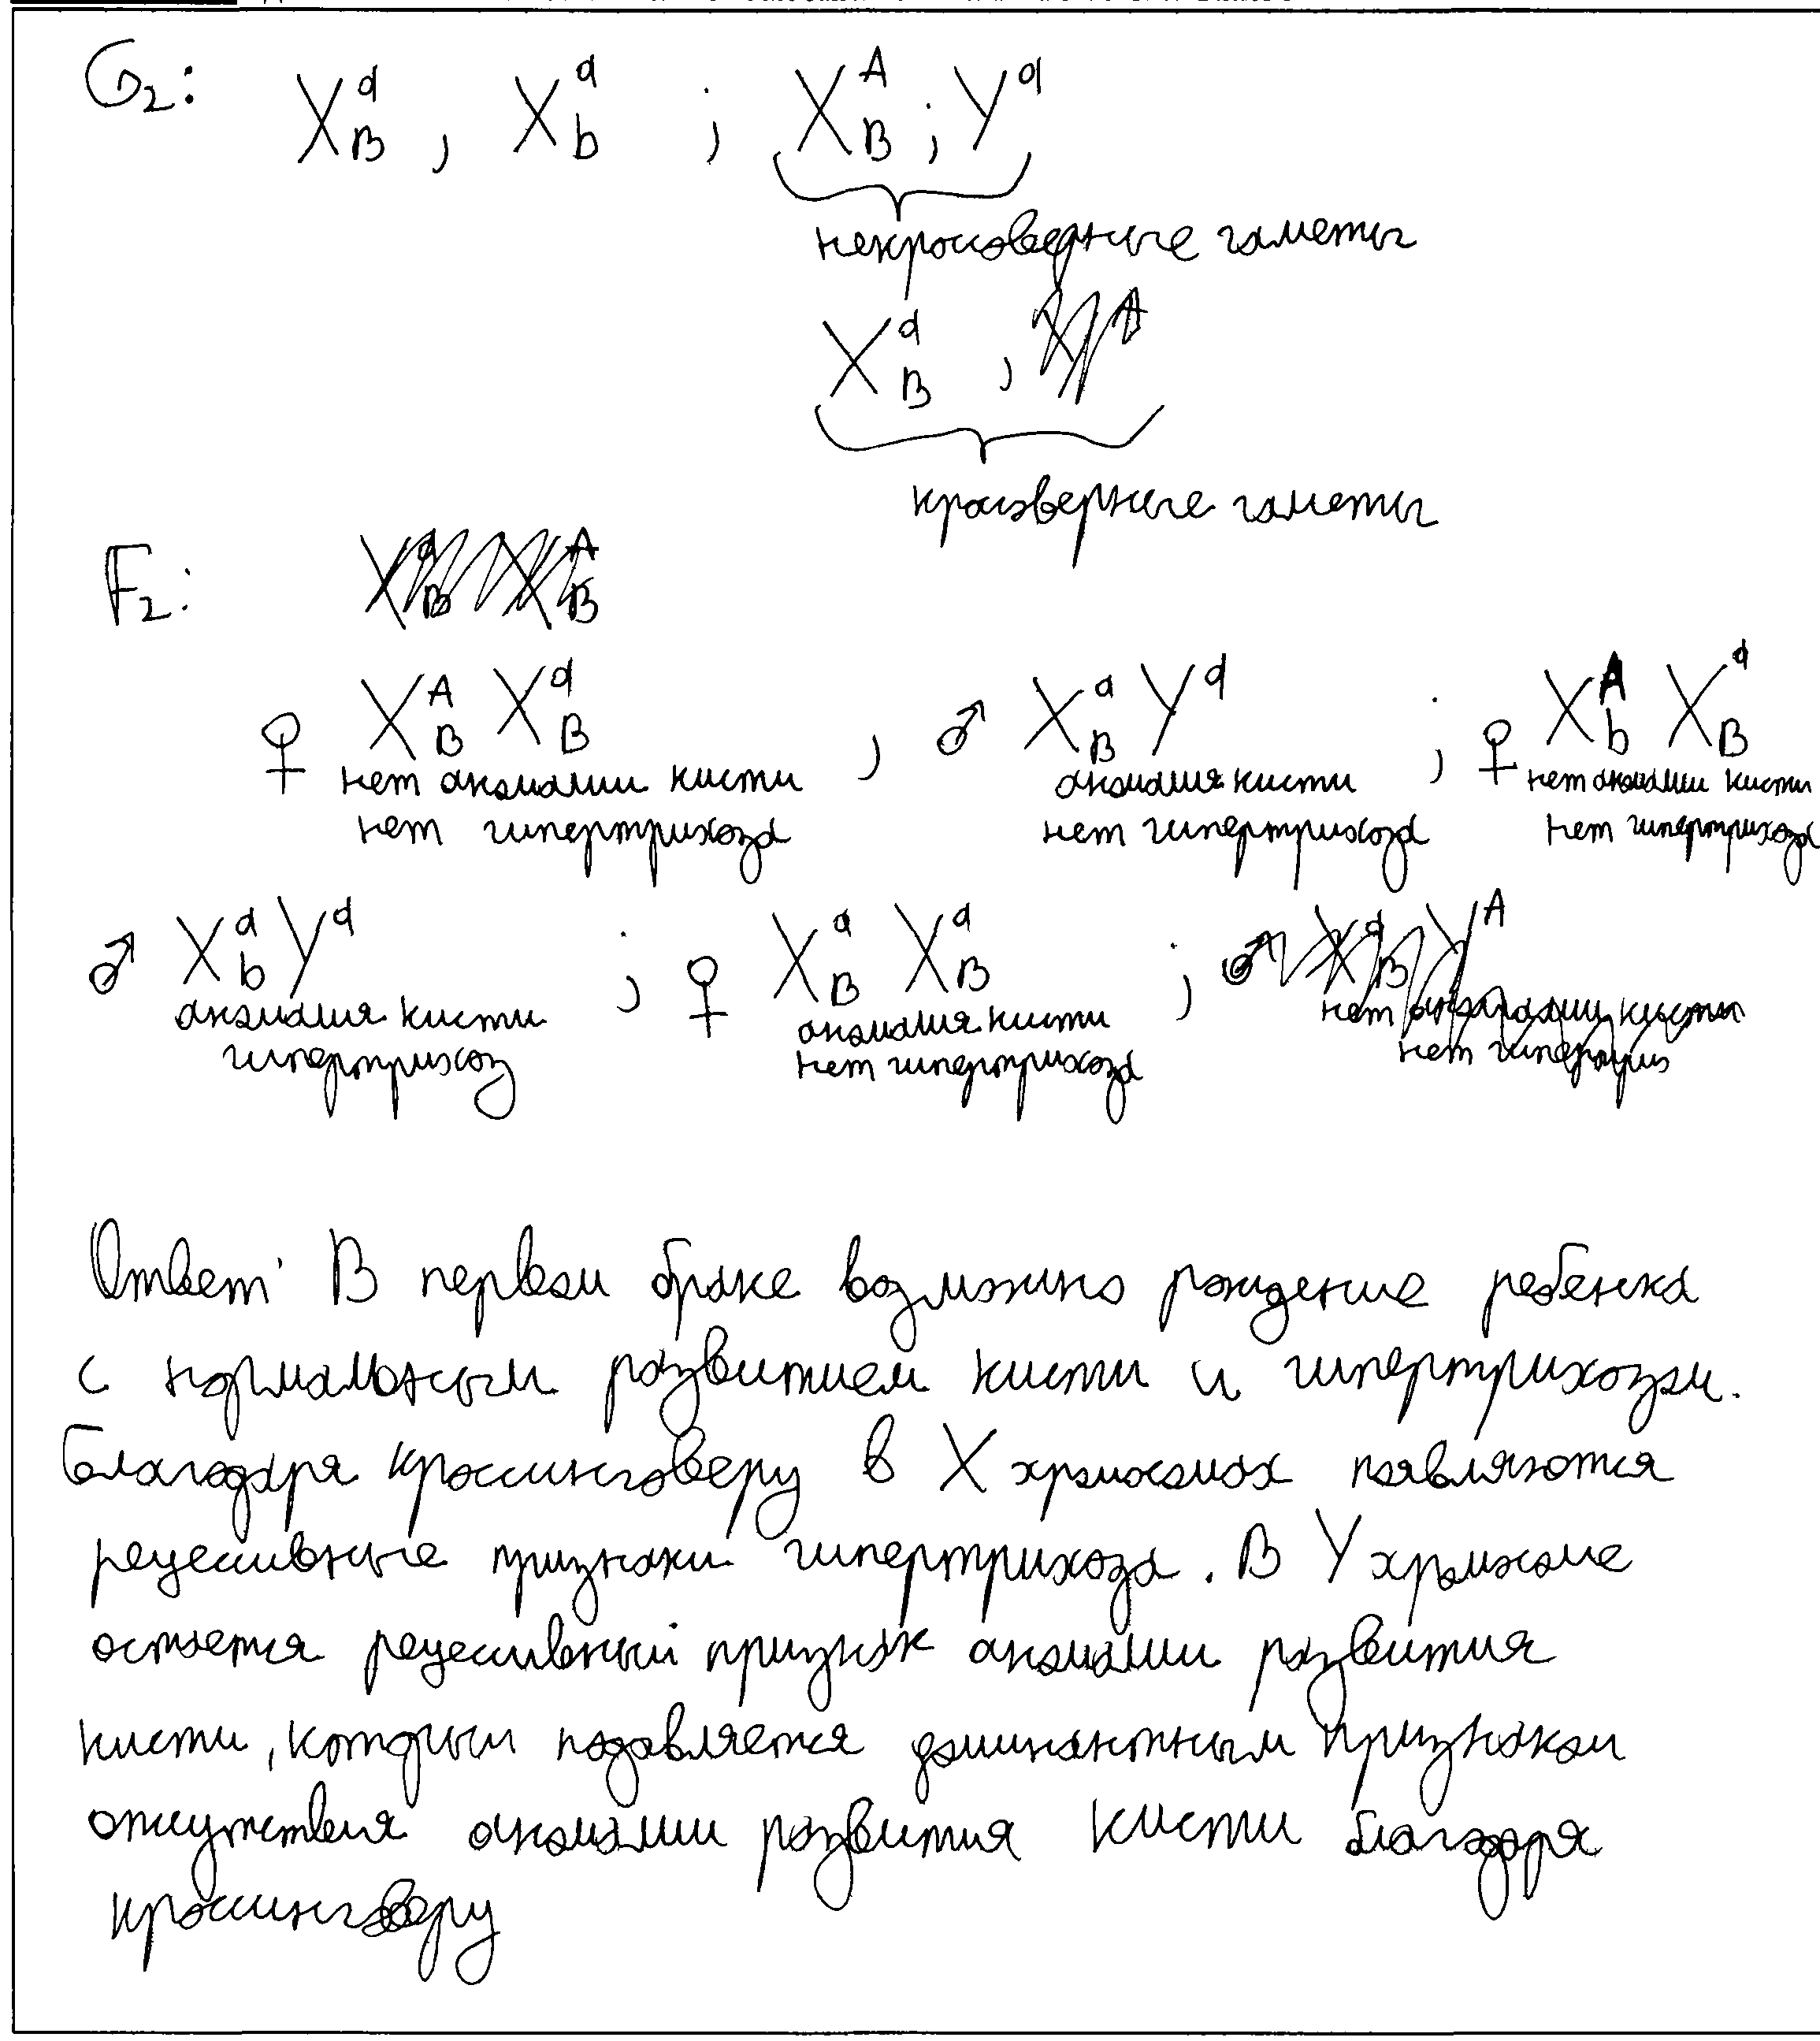 G₂: X^a_B , X^a_b ; X^A_B ; Y^a
некроссоверные гаметы
X^a_B ,
кроссверные гаметы
F₂:
♀ X^A_B X^a_B , ♂ X^a_B Y^a ; ♀ X^A_b X^a_B
нет аномалии кисти аномалия кисти нет аномалии кисти
нет гипертрихоза нет гипертрихоза нет гипертрихоза
♂ X^a_b Y^a ; ♀ X^a_B X^a_B ;
аномалия кисти аномалия кисти
гипертрихоз нет гипертрихоза
Ответ: В первом браке возможно рождение ребенка
с нормальным развитием кисти и гипертрихозом.
Благодаря кроссинговеру в X хромосомах появляются
рецессивные признаки гипертрихоза. В Y хромосоме
остается рецессивный признак аномалии развития
кисти, который подавляется доминантным признаком
отсутствия аномалии развития кисти благодаря
кроссинговеру